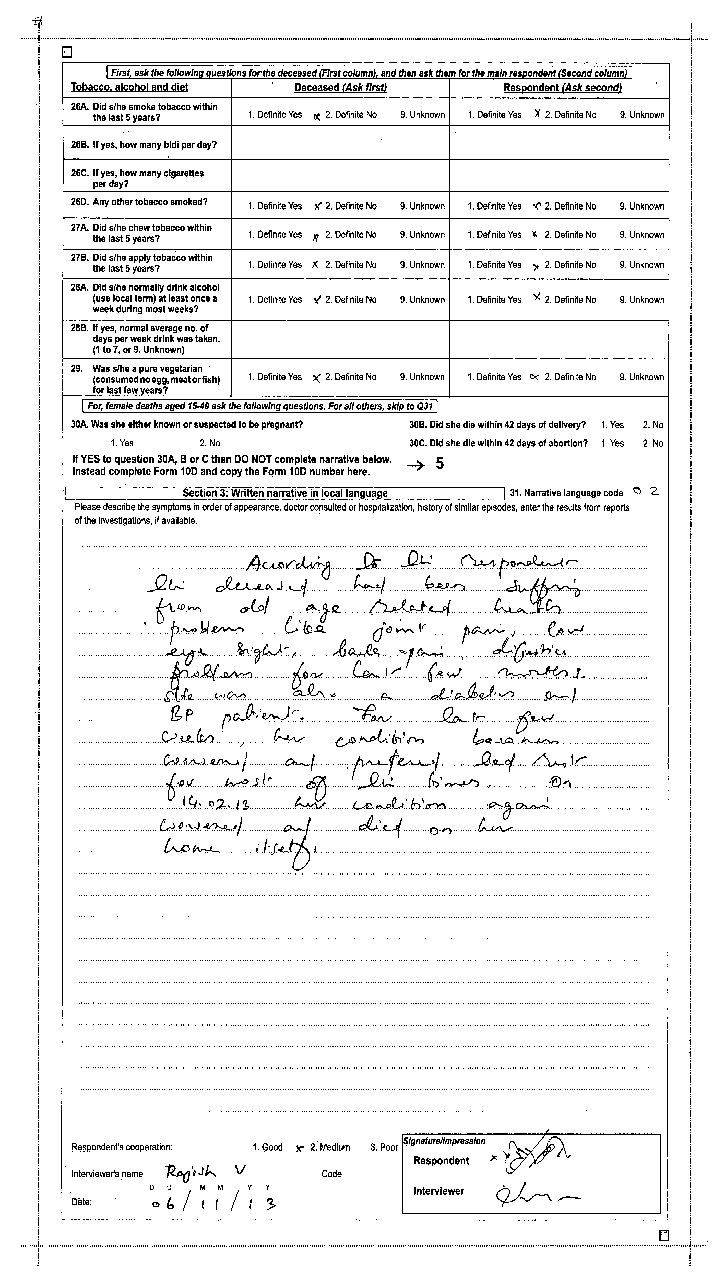 First, ask the following questions for the deceased (First column), and then ask them for the main respondent (Second column)
Tobacco, alcohol and diet Deceased (Ask first) Respondent (Ask second)
26A. Did s/he smoke tobacco within the last 5 years? 1. Definite Yes x 2. Definite No 9. Unknown 1. Definite Yes x 2. Definite No 9. Unknown
26B. If yes, how many bidi per day?
26C. If yes, how many cigarettes per day?
26D. Any other tobacco smoked? 1. Definite Yes x 2. Definite No 9. Unknown 1. Definite Yes x 2. Definite No 9. Unknown
27A. Did s/he chew tobacco within the last 5 years? 1. Definite Yes x 2. Definite No 9. Unknown 1. Definite Yes x 2. Definite No 9. Unknown
27B. Did s/he apply tobacco within the last 5 years? 1. Definite Yes x 2. Definite No 9. Unknown 1. Definite Yes x 2. Definite No 9. Unknown
28A. Did s/he normally drink alcohol (use local term) at least once a week during most weeks? 1. Definite Yes x 2. Definite No 9. Unknown 1. Definite Yes x 2. Definite No 9. Unknown
28B. If yes, normal average no. of days per week drink was taken. (1 to 7, or 9. Unknown)
29. Was s/he a pure vegetarian (consumed no egg, meat or fish) for last few years? 1. Definite Yes x 2. Definite No 9. Unknown 1. Definite Yes x 2. Definite No 9. Unknown
For, female deaths aged 15-49 ask the following questions. For all others, skip to Q31
30A. Was she either known or suspected to be pregnant? 30B. Did she die within 42 days of delivery? 1. Yes 2. No
1. Yes 2. No 30C. Did she die within 42 days of abortion? 1. Yes 2. No
If YES to question 30A, B or C then DO NOT complete narrative below.
Instead complete Form 10D and copy the Form 10D number here. → 5
Section 3: Written narrative in local language 31. Narrative language code 0 2
Please describe the symptoms in order of appearance, doctor consulted or hospitalization, history of similar episodes, enter the results from reports
of the investigations, if available.
According to the respondent
the deceased had been suffring
from old age related health
problems like joint pain, low
eye sight, back pain, digestion
problem for last few months.
She was also a diabetes and
BP patient. For last few
weeks, her condition became
worsened and prefered bed rest
for most of the times. On
14.02.13 her condition again
worsened and died on her
home itself.
Respondent's cooperation: 1. Good x 2. Medium 3. Poor
Signature/Impression
Respondent
Interviewer's name Rajish V Code
Interviewer
D D M M Y Y
Date: 06/11/13